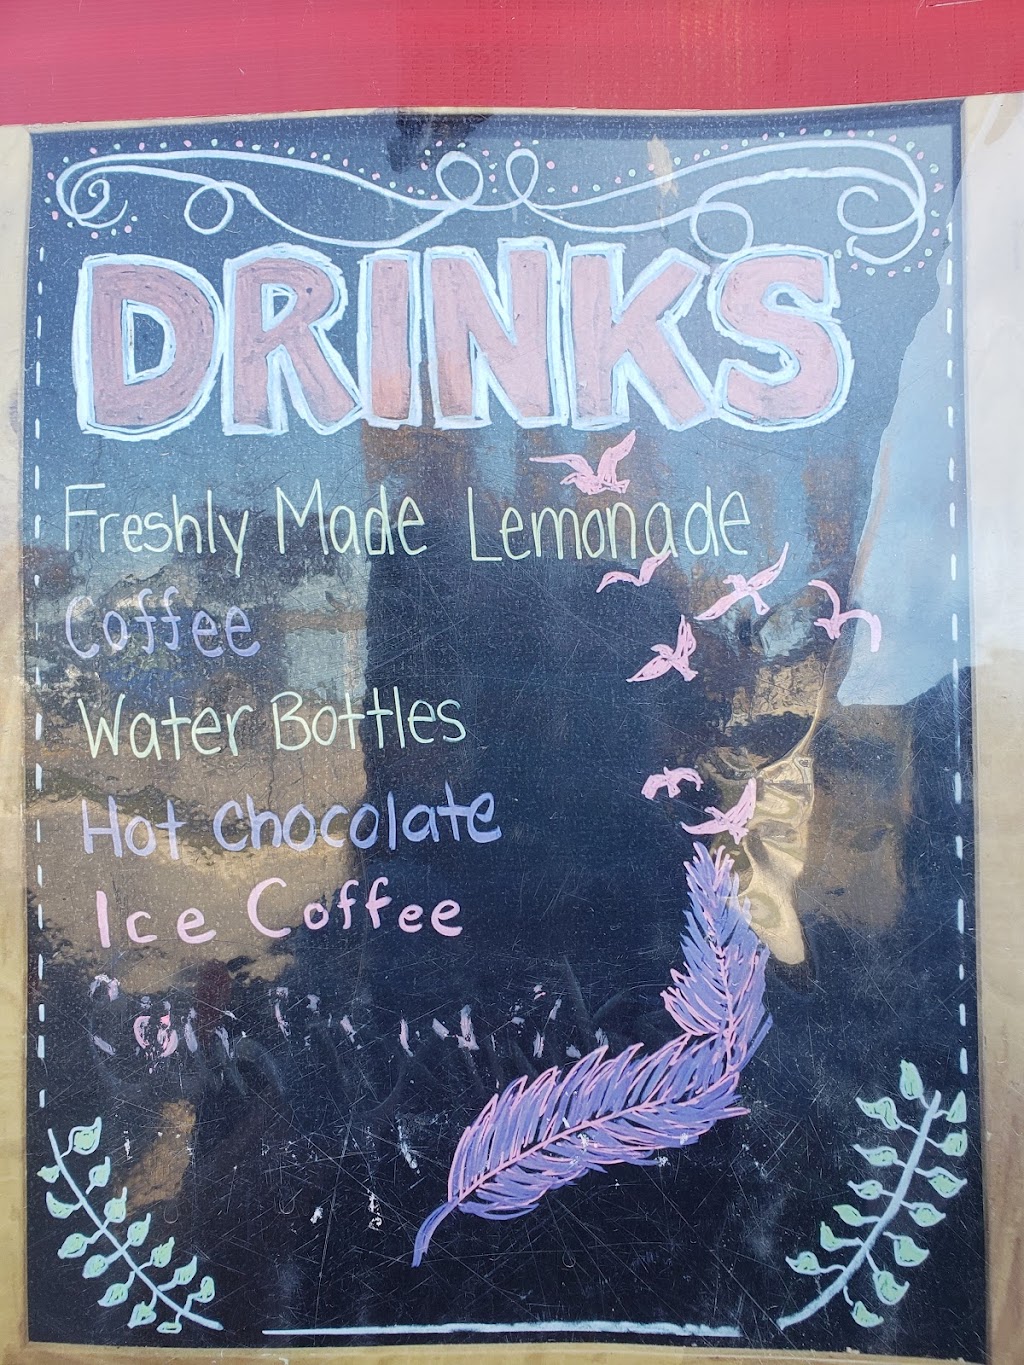 DRINKS
Freshly Made Lemonade
Coffee
Water Bottles
Hot Chocolate
Ice Coffee